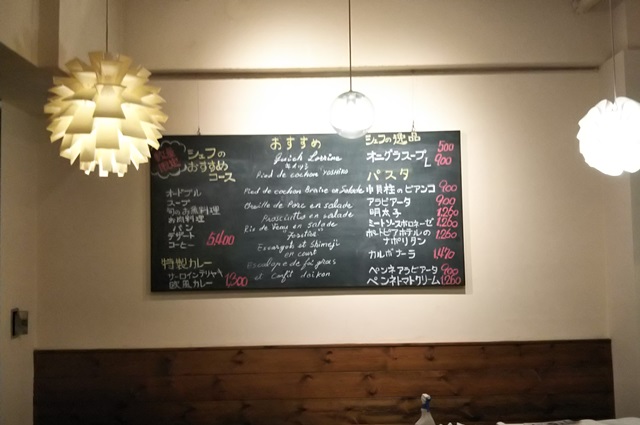 シェフの
おすすめ
コース
オードブル
スープ
旬のお魚料理
お肉料理
パン
デザート
コーヒー 5,400
特製カレー
サーロインテリヤキ
欧風カレー 1,300
おすすめ
Quich Lorrine
Pied de cochon YOSHINO
Pied de cochon Braise en Salade
Oreille de Porc en salade
Prosciutto en salade
Ris de Veau en salade
Escargot et Shimeji
en court
Escalope de foi gras
et Confit daikon
シェフの逸品
500
オニグラスープL 900
パスタ
小貝柱のビアンコ 900
アラビアータ 900
明太子 1,260
ミートソースボロネーゼ 1,260
ポルトピアホテルの
ナポリタン 1,260
カルボナーラ 1,470
ペンネアラビアータ 900
ペンネトマトクリーム 1,260